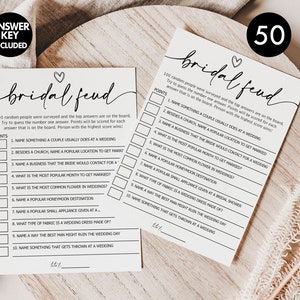 ANSWER
KEY
INCLUDED
50
bridal feud
100 random people were surveyed and the top answers are on
the board. Try to guess the number one answer. Points will be scored for each
answer that is on the board. Person with the highest score wins!
POINTS
1. NAME SOMETHING A COUPLE USUALLY DOES AT A WEDDING
2. BESIDES A CHURCH, NAME A POPULAR LOCATION TO GET
3. NAME A BUSINESS THAT THE BRIDE WOULD CONTACT FOR A
4. WHAT IS THE MOST POPULAR MONTH TO GET MARRIED
5. WHAT IS THE MOST COMMON FLOWER IN WEDDINGS?
6. NAME A POPULAR HONEYMOON DESTINATION
7. NAME A POPULAR SMALL APPLIANCE GIVEN AT A
8. WHAT TYPE OF FABRIC IS A WEDDING DRESS MADE OF?
9. NAME A WAY THE BEST MAN MIGHT RUIN THE WEDDING DAY
10. NAME SOMETHING THAT GETS THROWN AT A WEDDING
bridal feud
100 random people were surveyed and the top answers are on the board.
Try to guess the number one answer. Points will be scored for each
answer that is on the board. Person with the highest score wins!
POINTS
1. NAME SOMETHING A COUPLE USUALLY DOES AT A WEDDING
2. BESIDES A CHURCH, NAME A POPULAR LOCATION TO GET MARRIED
3. NAME A BUSINESS THAT THE BRIDE WOULD CONTACT FOR A WEDDING
4. WHAT IS THE MOST POPULAR MONTH TO GET MARRIED
5. WHAT IS THE MOST COMMON FLOWER IN WEDDINGS?
6. NAME A POPULAR HONEYMOON DESTINATION
7. NAME A POPULAR SMALL APPLIANCE GIVEN AT A BRIDAL SHOWER
8. WHAT TYPE OF FABRIC IS A WEDDING DRESS MADE OF?
9. NAME A WAY THE BEST MAN MIGHT RUIN THE WEDDING DAY
10. NAME SOMETHING THAT GETS THROWN AT A WEDDING